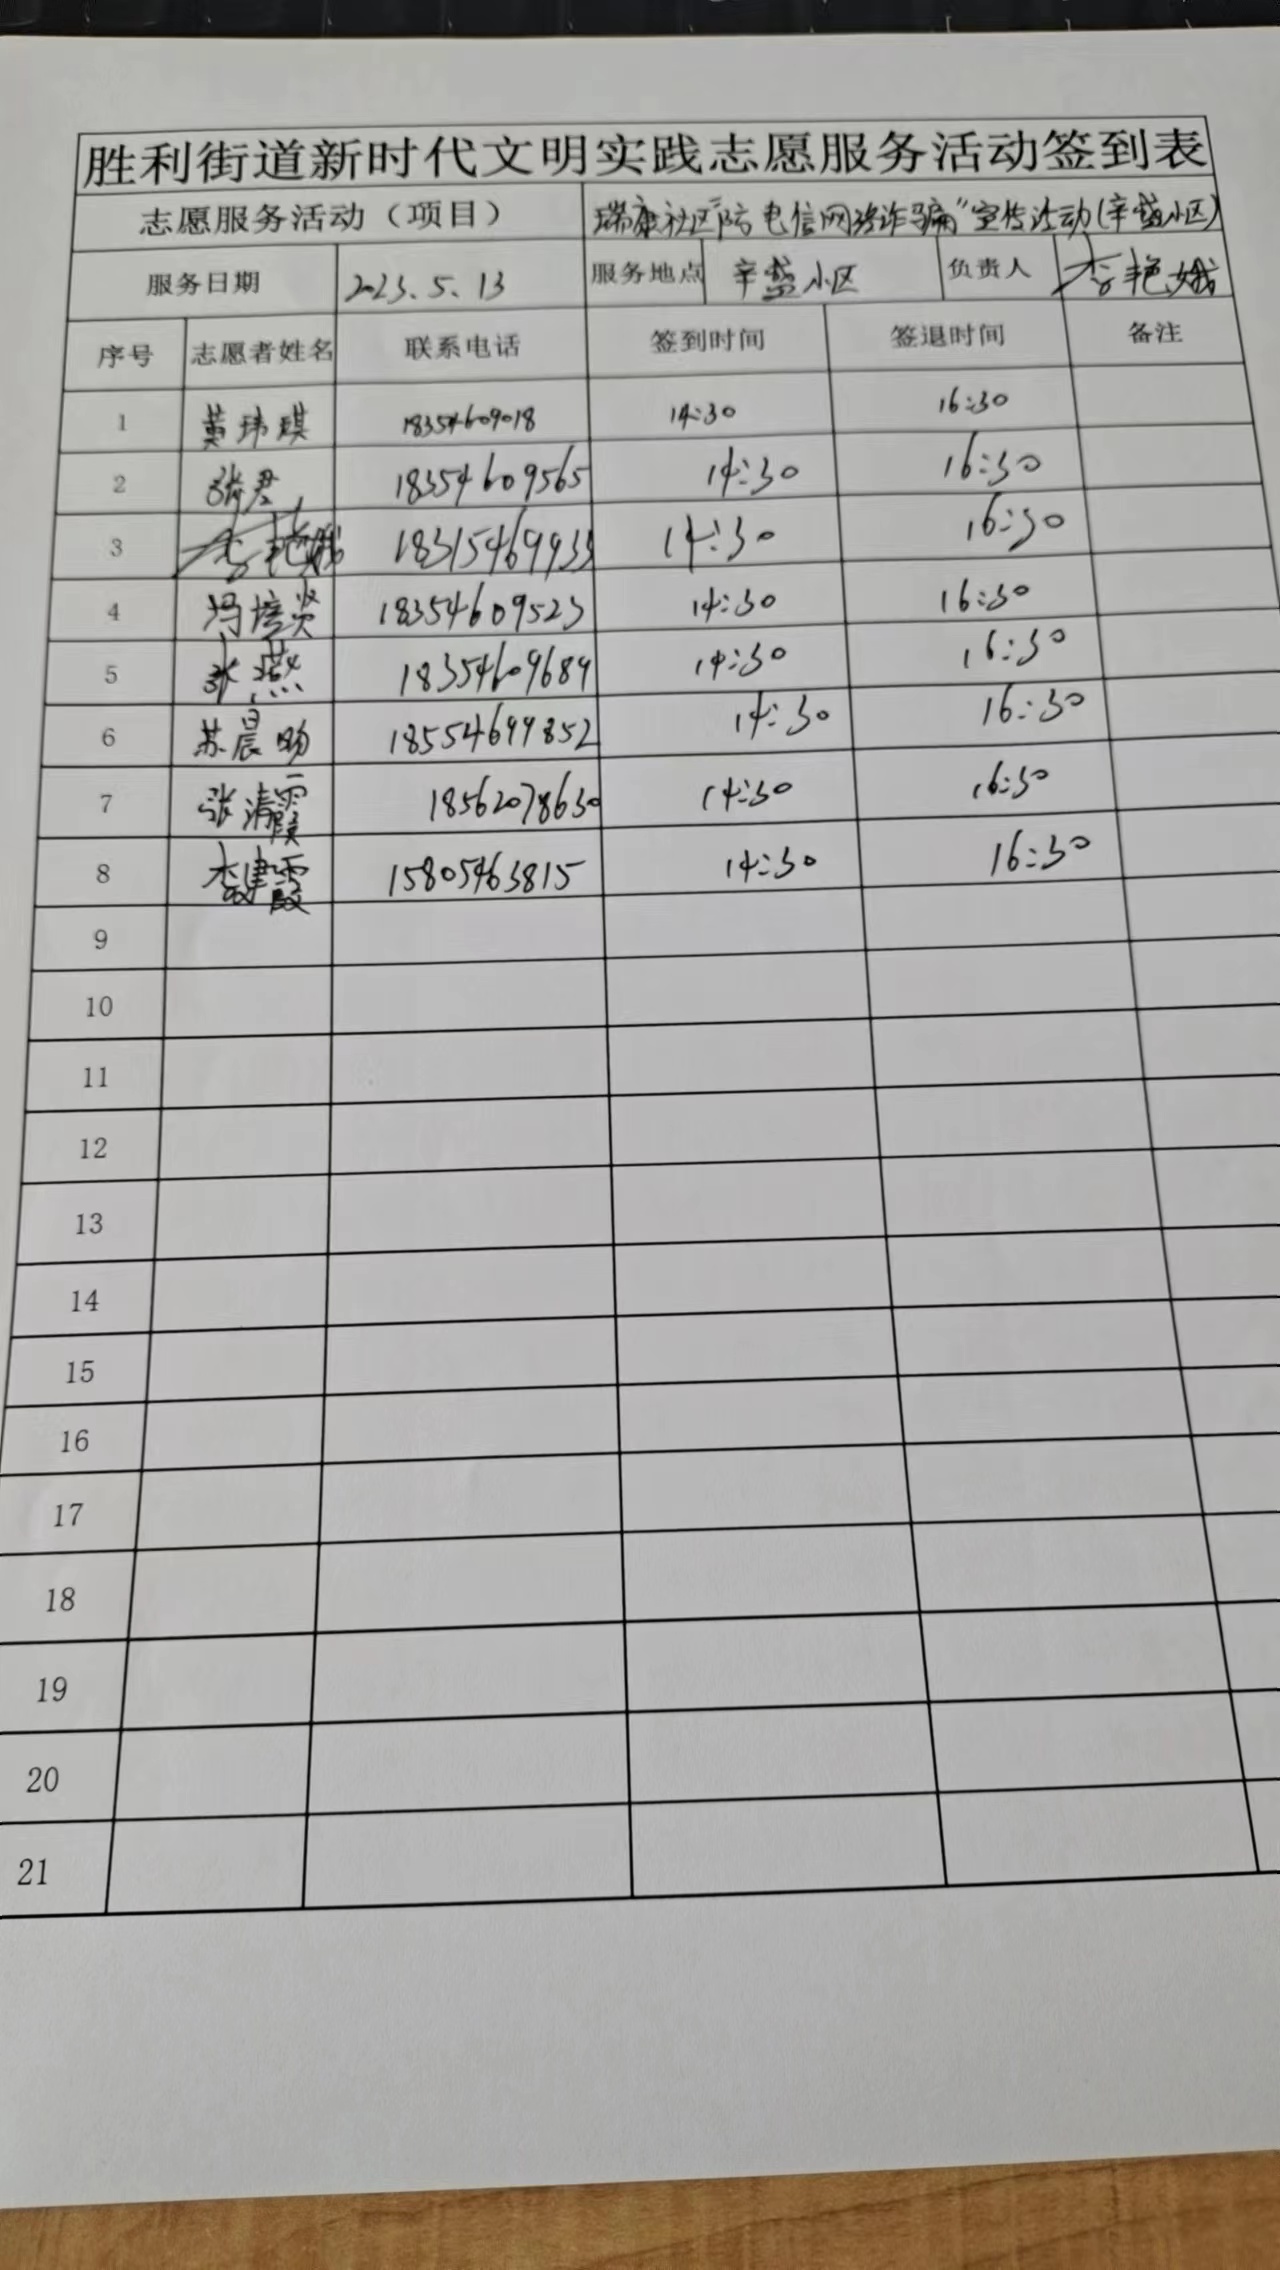 胜利街道新时代文明实践志愿服务活动签到表
志愿服务活动（项目） 瑞康社区"防电信网络诈骗"宣传活动(辛盛小区)
服务日期 2023.5.13 服务地点 辛盛小区 负责人 李艳娥
序号 志愿者姓名 联系电话 签到时间 签退时间 备注
1 黄玮琪 18354609018 14:30 16:30
2 张君 18354609565 14:30 16:30
3 李艳娥 18315469933 14:30 16:30
4 冯培贤 18354609523 14:30 16:30
5 张燕 18354609689 14:30 16:30
6 苏晨旸 18554699852 14:30 16:30
7 张清霞 18562078630 14:30 16:30
8 李建霞 15805463815 14:30 16:30
9
10
11
12
13
14
15
16
17
18
19
20
21